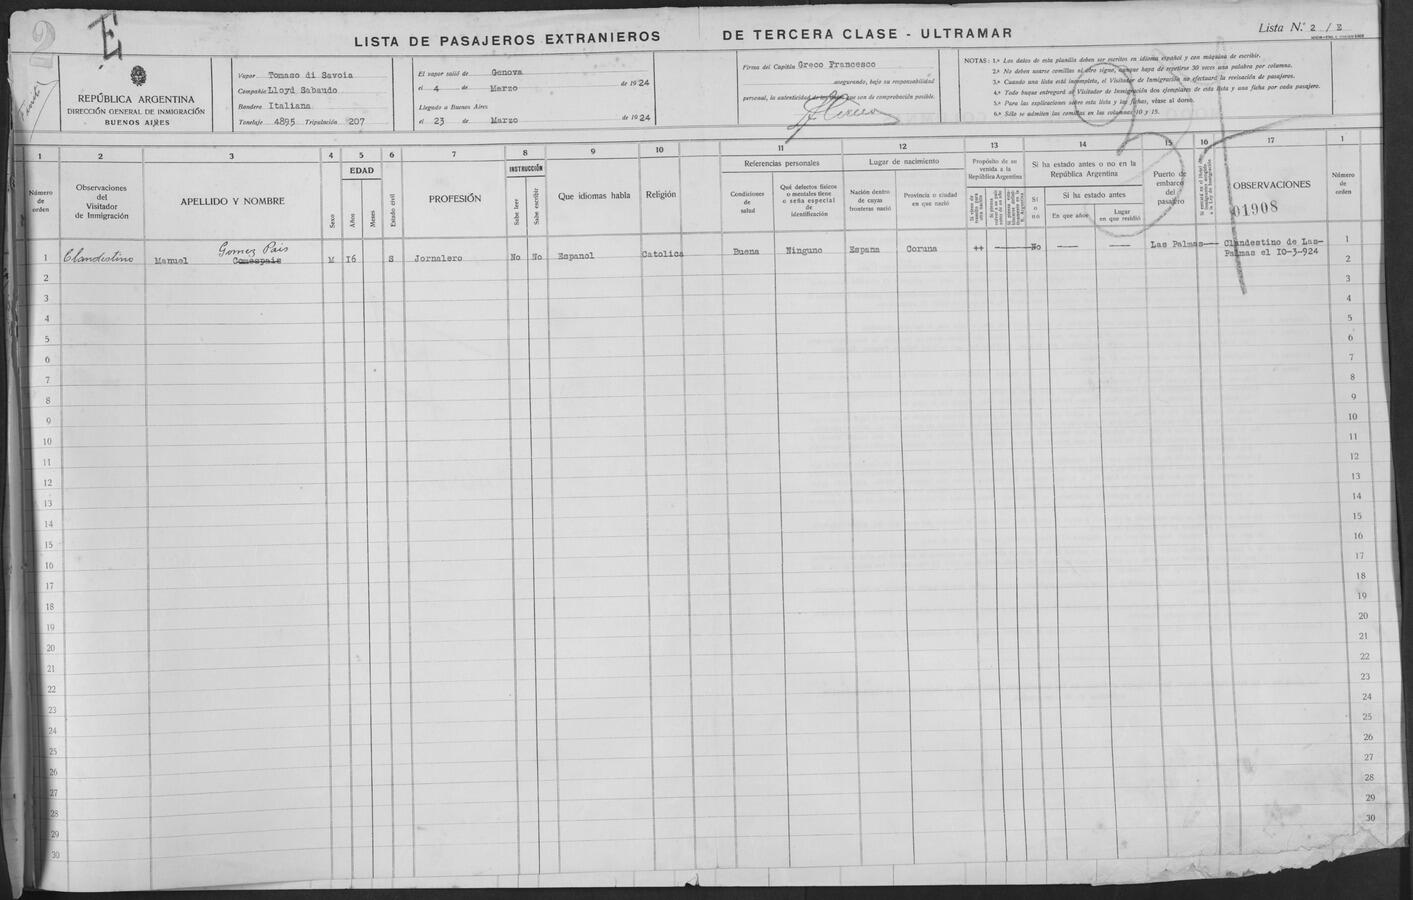 2
E
LISTA DE PASAJEROS EXTRANIEROS DE TERCERA CLASE - ULTRAMAR
Lista N.º 2 / E
REPÚBLICA ARGENTINA
DIRECCIÓN GENERAL DE INMIGRACIÓN
BUENOS AIRES
Vapor Tomaso di Savoia
Compañia Lloyd Sabaudo
Bandera Italiana
Tonelaje 4895 Tripulación 207
El vapor salió de Genova
el 4 de Marzo de 1924
Llegado a Buenos Aires
el 23 de Marzo de 1924
Firma del Capitán Greco Francesco
asegurando, bajo su responsabilidad
personal, la autenticidad de los que son de comprobación posible.
NOTAS: 1.ª Los datos de esta planilla deben ser escritos en idioma español y con máquina de escribir.
2.ª No deben usarse comillas ni otro signo, aunque haya de repetirse 30 veces una palabra por columna.
3.ª Cuando una lista está incompleta, el Visitador de Inmigración no efectuará la revisación de pasajeros.
4.ª Todo buque entregará al Visitador de Inmigración dos ejemplares de esta lista y una ficha por cada pasajero.
5.ª Para las explicaciones sobre esta lista y las fichas, véase al dorso.
6.ª Sólo se admiten las comillas en las columnas 10 y 15.
1 2 3 4 5 6 7 8 9 10 11 12 13 14 15 16 17 1
Número de orden
Observaciones del Visitador de Inmigración
APELLIDO Y NOMBRE
Sexo
EDAD
Años
Meses
Estado civil
PROFESIÓN
INSTRUCCIÓN
Sabe leer
Sabe escribir
Que idiomas habla
Religión
Referencias personales
Condiciones de salud
Qué defectos físicos o mentales tiene o seña especial de identificación
Lugar de nacimiento
Nación dentro de cuyas fronteras nació
Provincia o ciudad en que nació
Propósito de su venida a la República Argentina
Si ha estado antes o no en la República Argentina
Si o no
Si ha estado antes
En que años
Lugar en que residió
Puerto de embarco del pasajero
OBSERVACIONES
01908
Número de orden
Gomez Pais
1 Clandestino Manuel Comespais M 16 S Jornalero No No Espanol Catolica Buena Ninguno Espana Coruna ++ No Las Palmas Clandestino de Las- 1
Palmas el 10-3-924
2 2
3 3
4 4
5 5
6 6
7 7
8 8
9 9
10 10
11 11
12 12
13 13
14 14
15 15
16 16
17 17
18 18
19 19
20 20
21 21
22 22
23 23
24 24
25 25
26 26
27 27
28 28
29 29
30 30